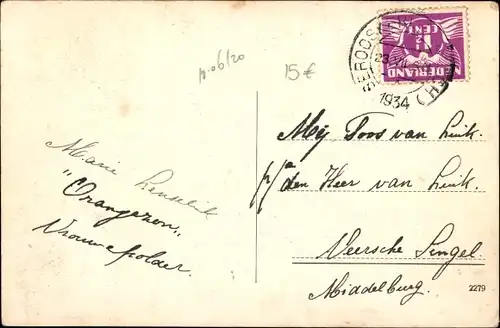 p.06/20
15€
1½ CENT
NEDERLAND
1934
Mej Toos van Luik.
p/a den Heer van Luik.
Veersche Singel.
Middelburg.
Marie
"Oranjezon"
Vrouwepolder.
2279